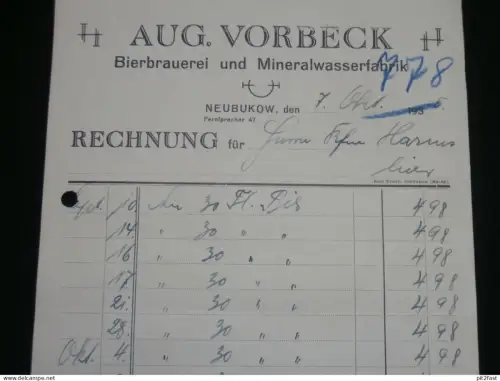 AUG. VORBECK
Bierbrauerei und Mineralwasserfabrik
778
NEUBUKOW, den 7. Okt. 1935.
Fernsprecher 41
RECHNUNG für Herrn Harms
hier
Sept. 10. An 30 Fl. Bier 4 98
14. " 30 " " 4 98
16 " 30 " " 4 98
17 " 30 " " 4 98
21. " 30 " " 4 98
28. " 30 " " 4 98
Okt. 4. " 30 " " 4 98